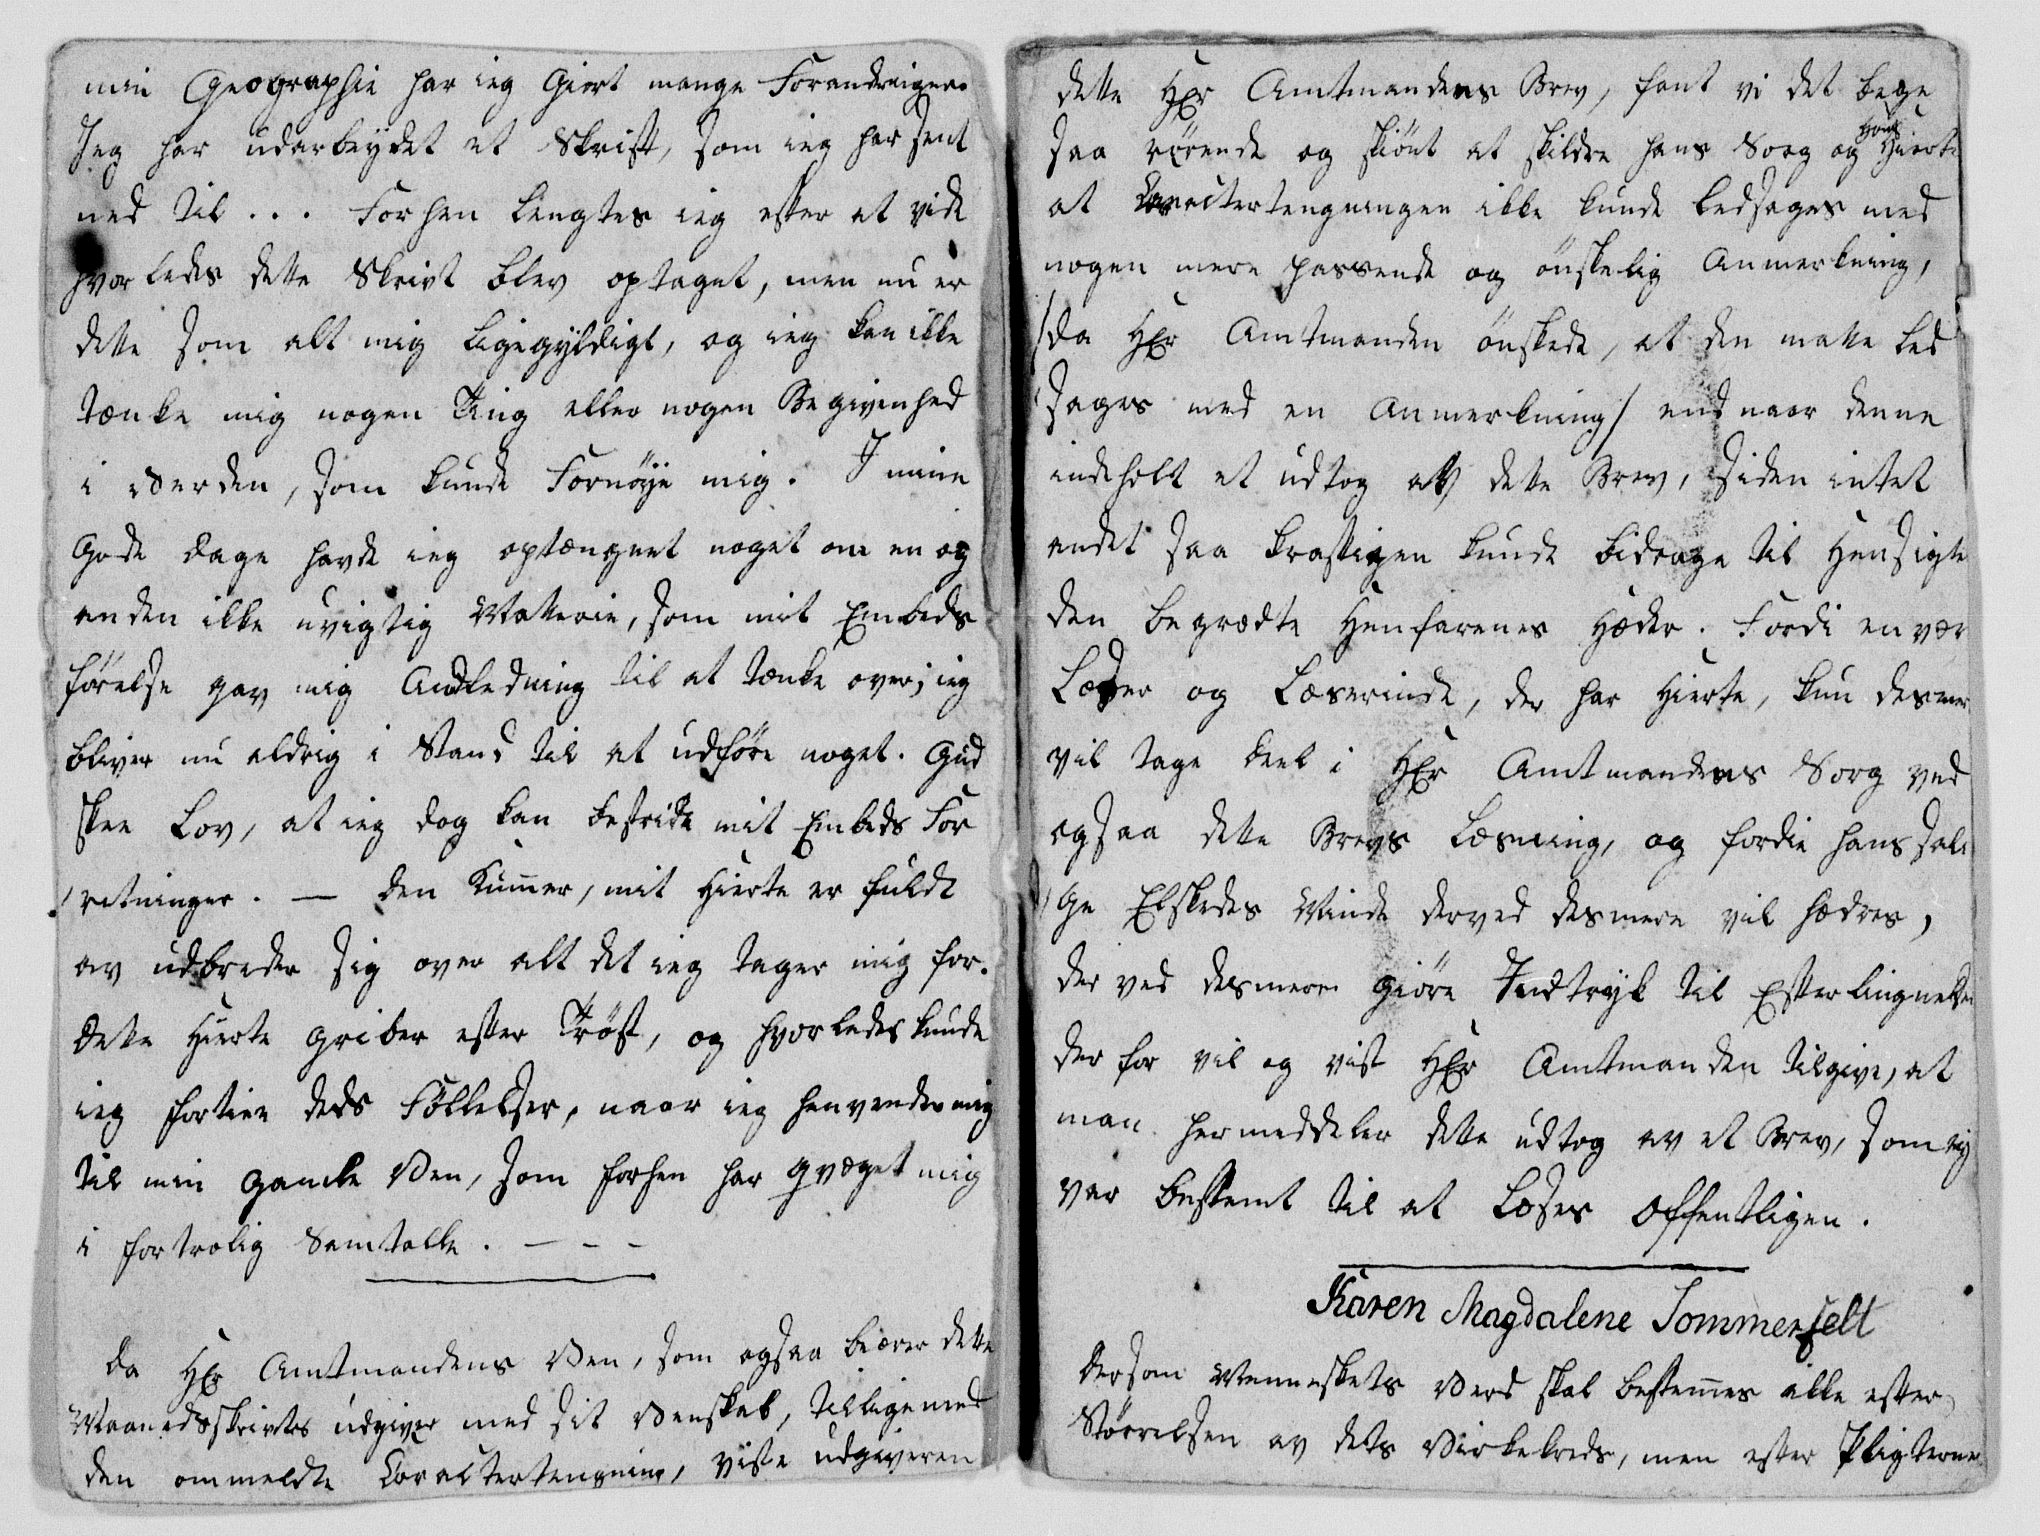 min Geographie har ieg giort mange Forandringer.
Jeg har udarbeydet et Skrift, som ieg har sent
ned til... Forhen lengtes ieg efter at vide
hvorledes dette Skrivt blev optaget, men nu er
dette som alt mig ligegyldigt, og ieg kan ikke
tænke mig nogen Ting eller nogen Begivenhed
i Verden, som kunde Fornøye mig. I mine
gode Dage havde ieg optængnet noget om en og
anden ikke uvigtig Matterie, som mit Embeds
førelse gav mig Andledning til at tænke over; ieg
bliver nu aldrig i Stand til at udføre noget. Gud
skee Lov, at ieg dog kan bestride mit Embeds For
retninger. — Den Kummer, mit Hierte er fuldt
av udbreder sig over alt det ieg tager mig for.
Dette Hierte griber efter Trøst, og hvorledes kunde
ieg fortiee deds Føllelser, naar ieg henvender mig
til min gamle Ven, som forhen har qvæget mig
i fortrolig Samtalle. - - -
Da HEr Amtmandens Ven, som ogsaa beærer dette
Maanedsskrivtes udgiver med sit Venskab, tilligemed
den ommeldte Caracktertengning, viste udgiveren
dette HEr Amtmandens Brev, fant vi det bege
saa rørende og skiønt at skildre hans Sorg og hans Hierte
at Caracktertengningen ikke kunde ledsages med
nogen mere passende og ønskelig Anmerkning,
/da HEr Amtmanden ønskede, at den matte led
sages med en Anmerkning/ end naar denne
indeholt et udtog af dette Brev, siden intet
andet saa kraftigen kunde bidrage til Hensigte
den begrædte Henfarenes Hæder. Fordi en vær
Læser og Læserinde, der har Hierte, kun desmer
vil tage Deel i HEr Amtmandens Sorg ved
ogsaa dette Brevs Læsning, og fordie hans sali
ge Elskedes Minde derved desmere vil hædres,
der ved desmere giøre Indtryk til Efterlingnelse
der for vil og vist HEr Amtmanden tilgive, at
man hermeddeler dette udtog av et Brev, som ey
var bestemt til at læses offentligen.
Karen Magdalene Sommerfelt
Dersom Menneskets Verd skal bestemmes ikke efter
Størrelsen av dets Virkekreds, men efter Pligterne